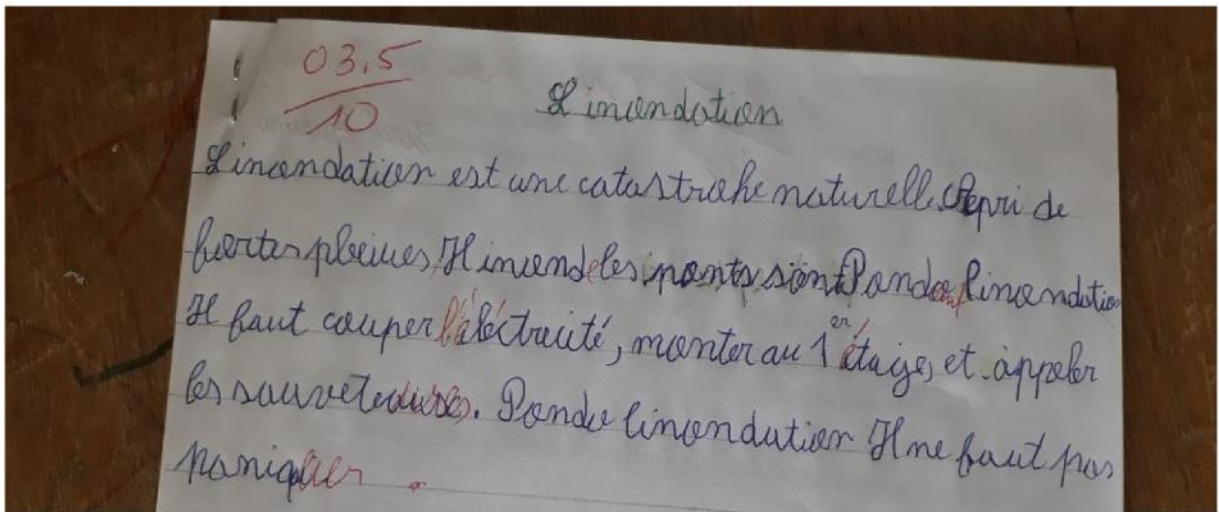 03.5
10
L'inondation
L'inondation est une catastrohe naturelle. Repri de
fortes pleiues, Il inondeles ponts siont Pandant linondation
Il faut couper l'électricité, monter au 1er étage, et appeler
les sauveteures. Pande linondation Il ne faut pas
paniquer.